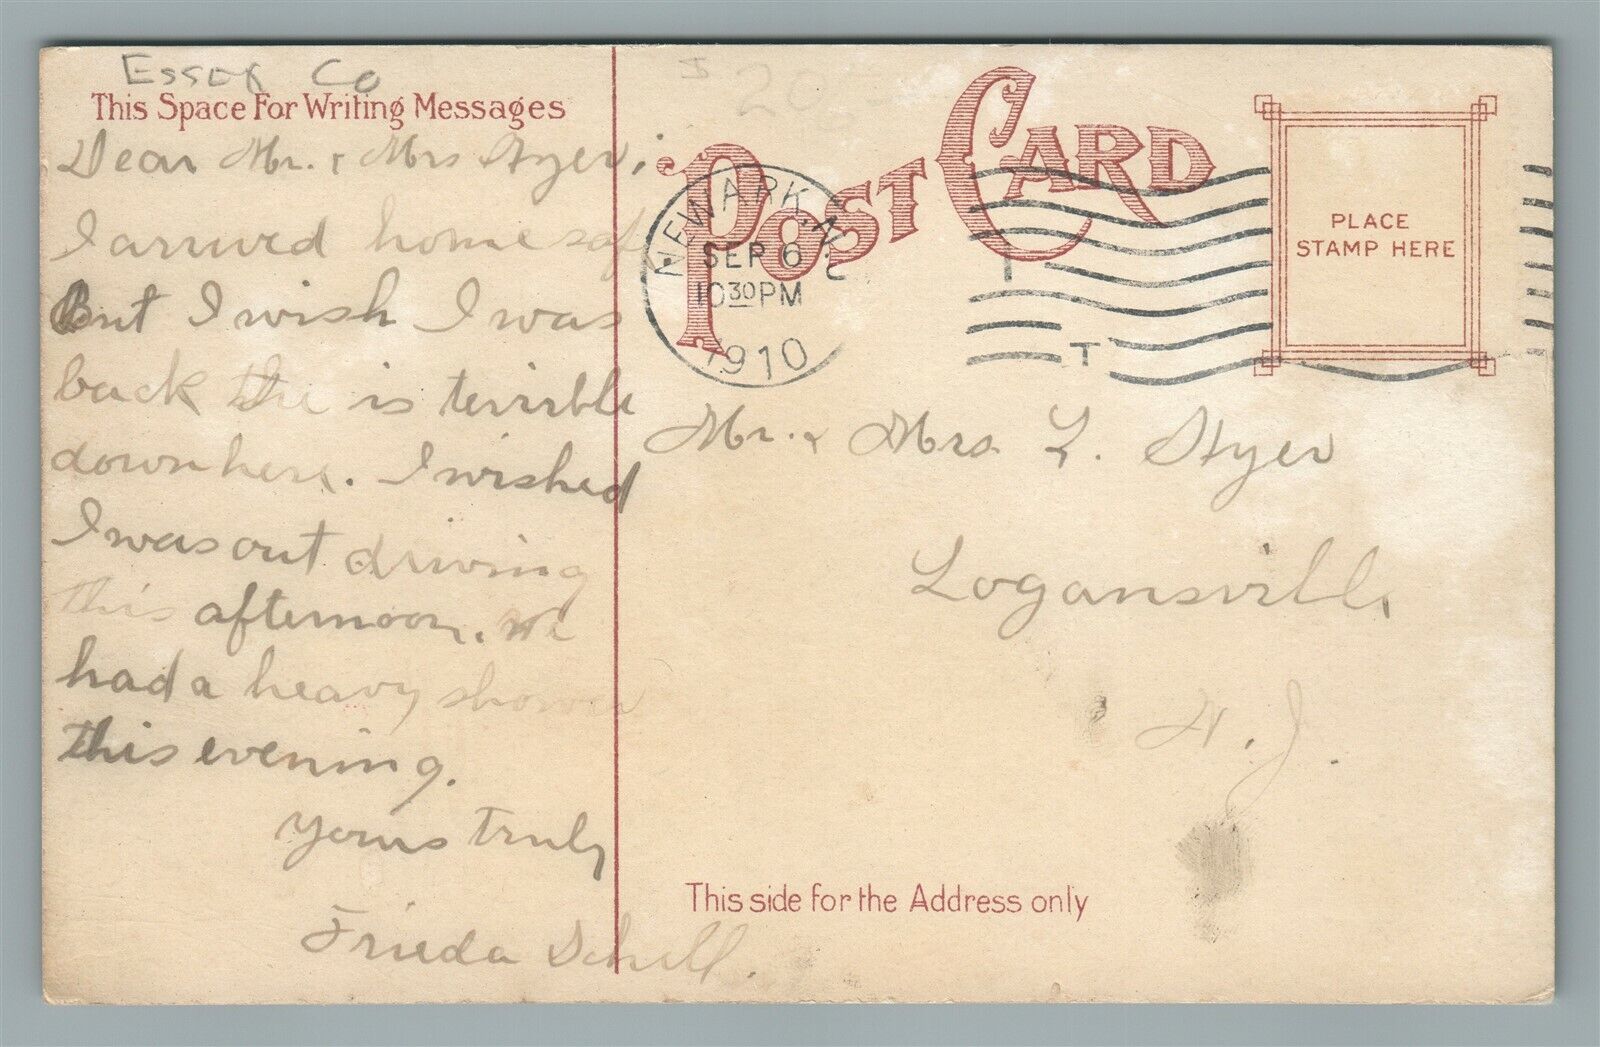 Essex Co
This Space For Writing Messages
Dear Mr. & Mrs Styer;
I arrived home safe
But I wish I was
back. It is terrible
down here. I wished
I was out driving
this afternoon. We
had a heavy shower
this evening.
Yours truly
Frieda Schill.
POST CARD
NEWARK, N.J.
SEP 6
10 30 PM
1910
T
PLACE
STAMP HERE
Mr. & Mrs. L. Styer
Logansville,
N. J.
This side for the Address only